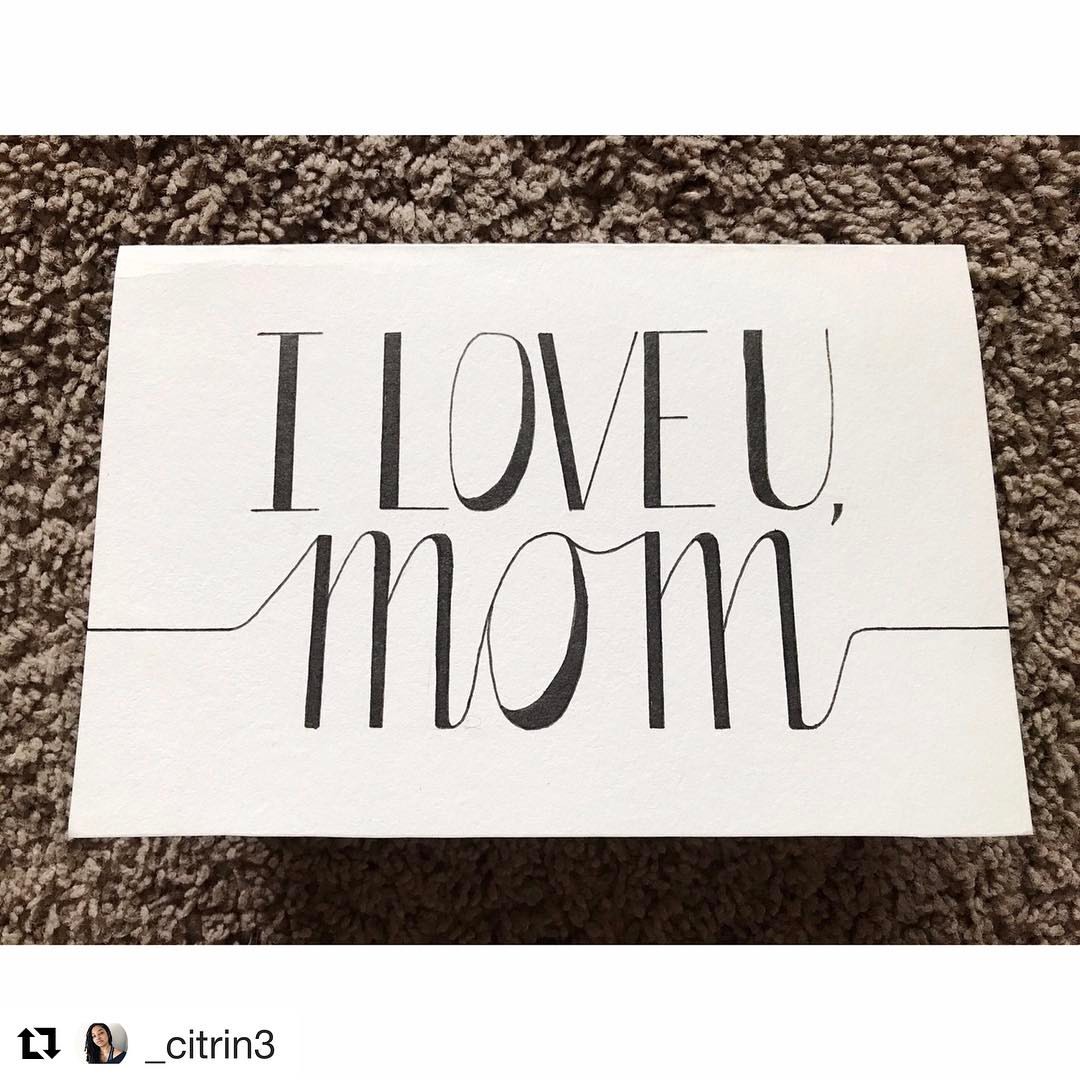 I LOVE U,
mom
_citrin3